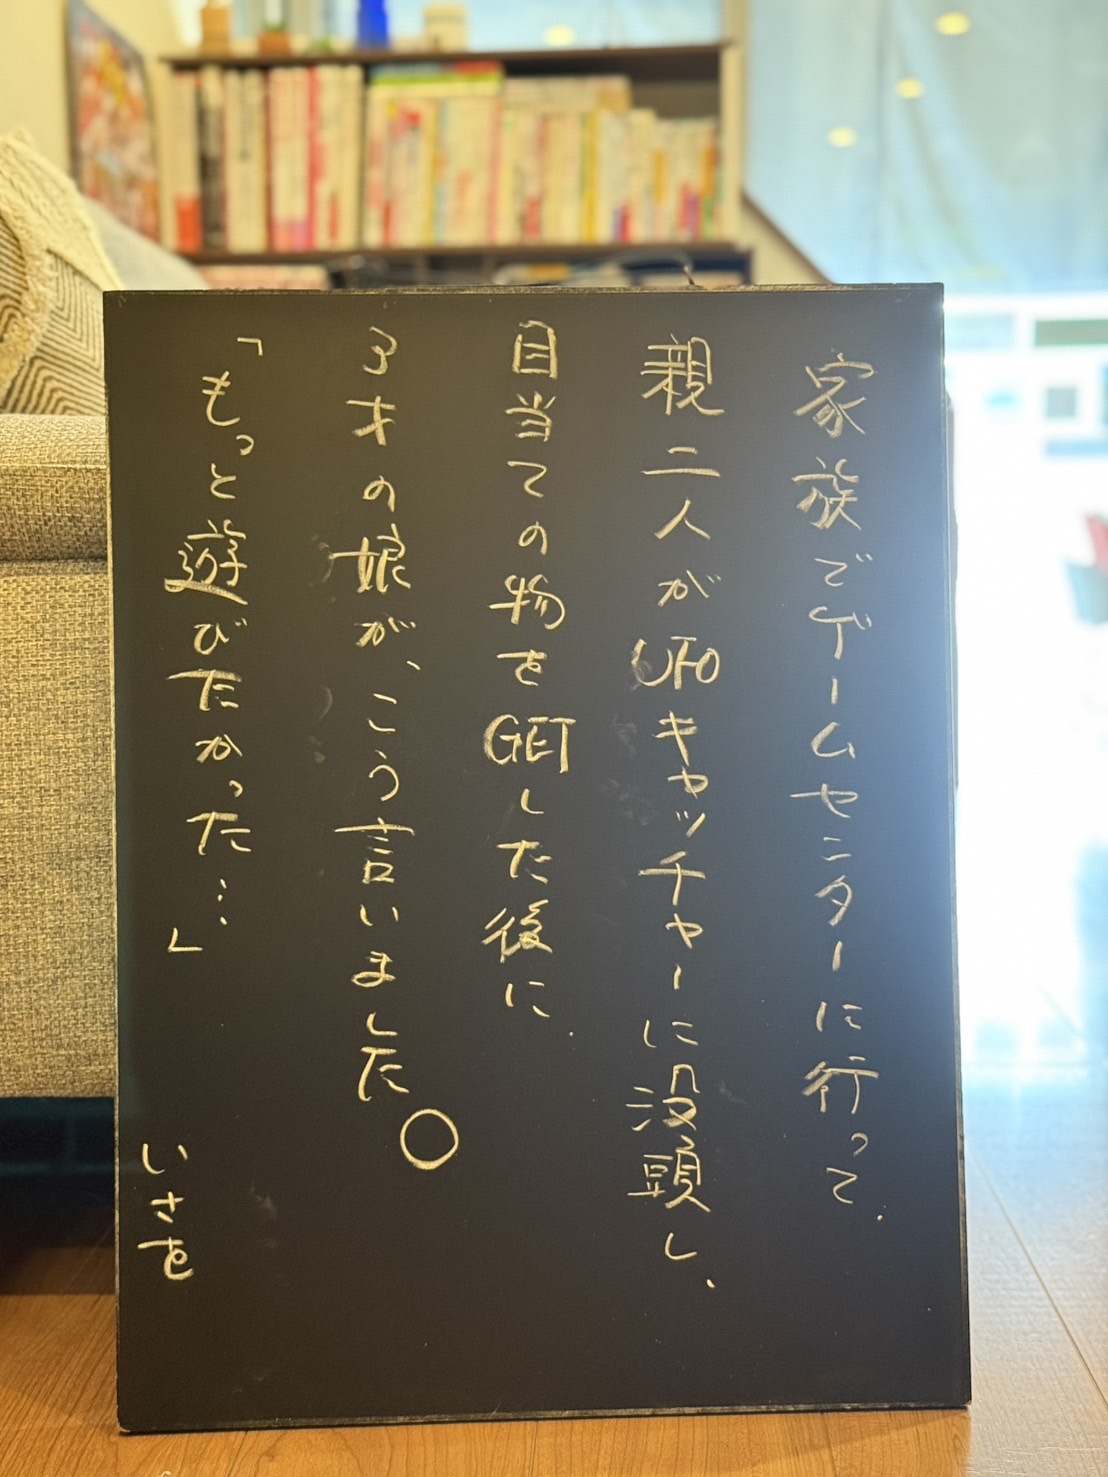 家族でゲームセンターに行って、
親二人がUFOキャッチャーに没頭し、
目当ての物をGETした後に、
3才の娘が、こう言いました。
「もっと遊びたかった…」
いさを